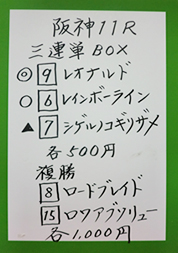 阪神11R
三連単BOX
◎ 9 レオナルド
○ 6 レインボーライン
▲ 7 シゲルノコギリザメ
各500円
複勝
8 ロードブレイド
15 ロワアブソリュー
各1,000円